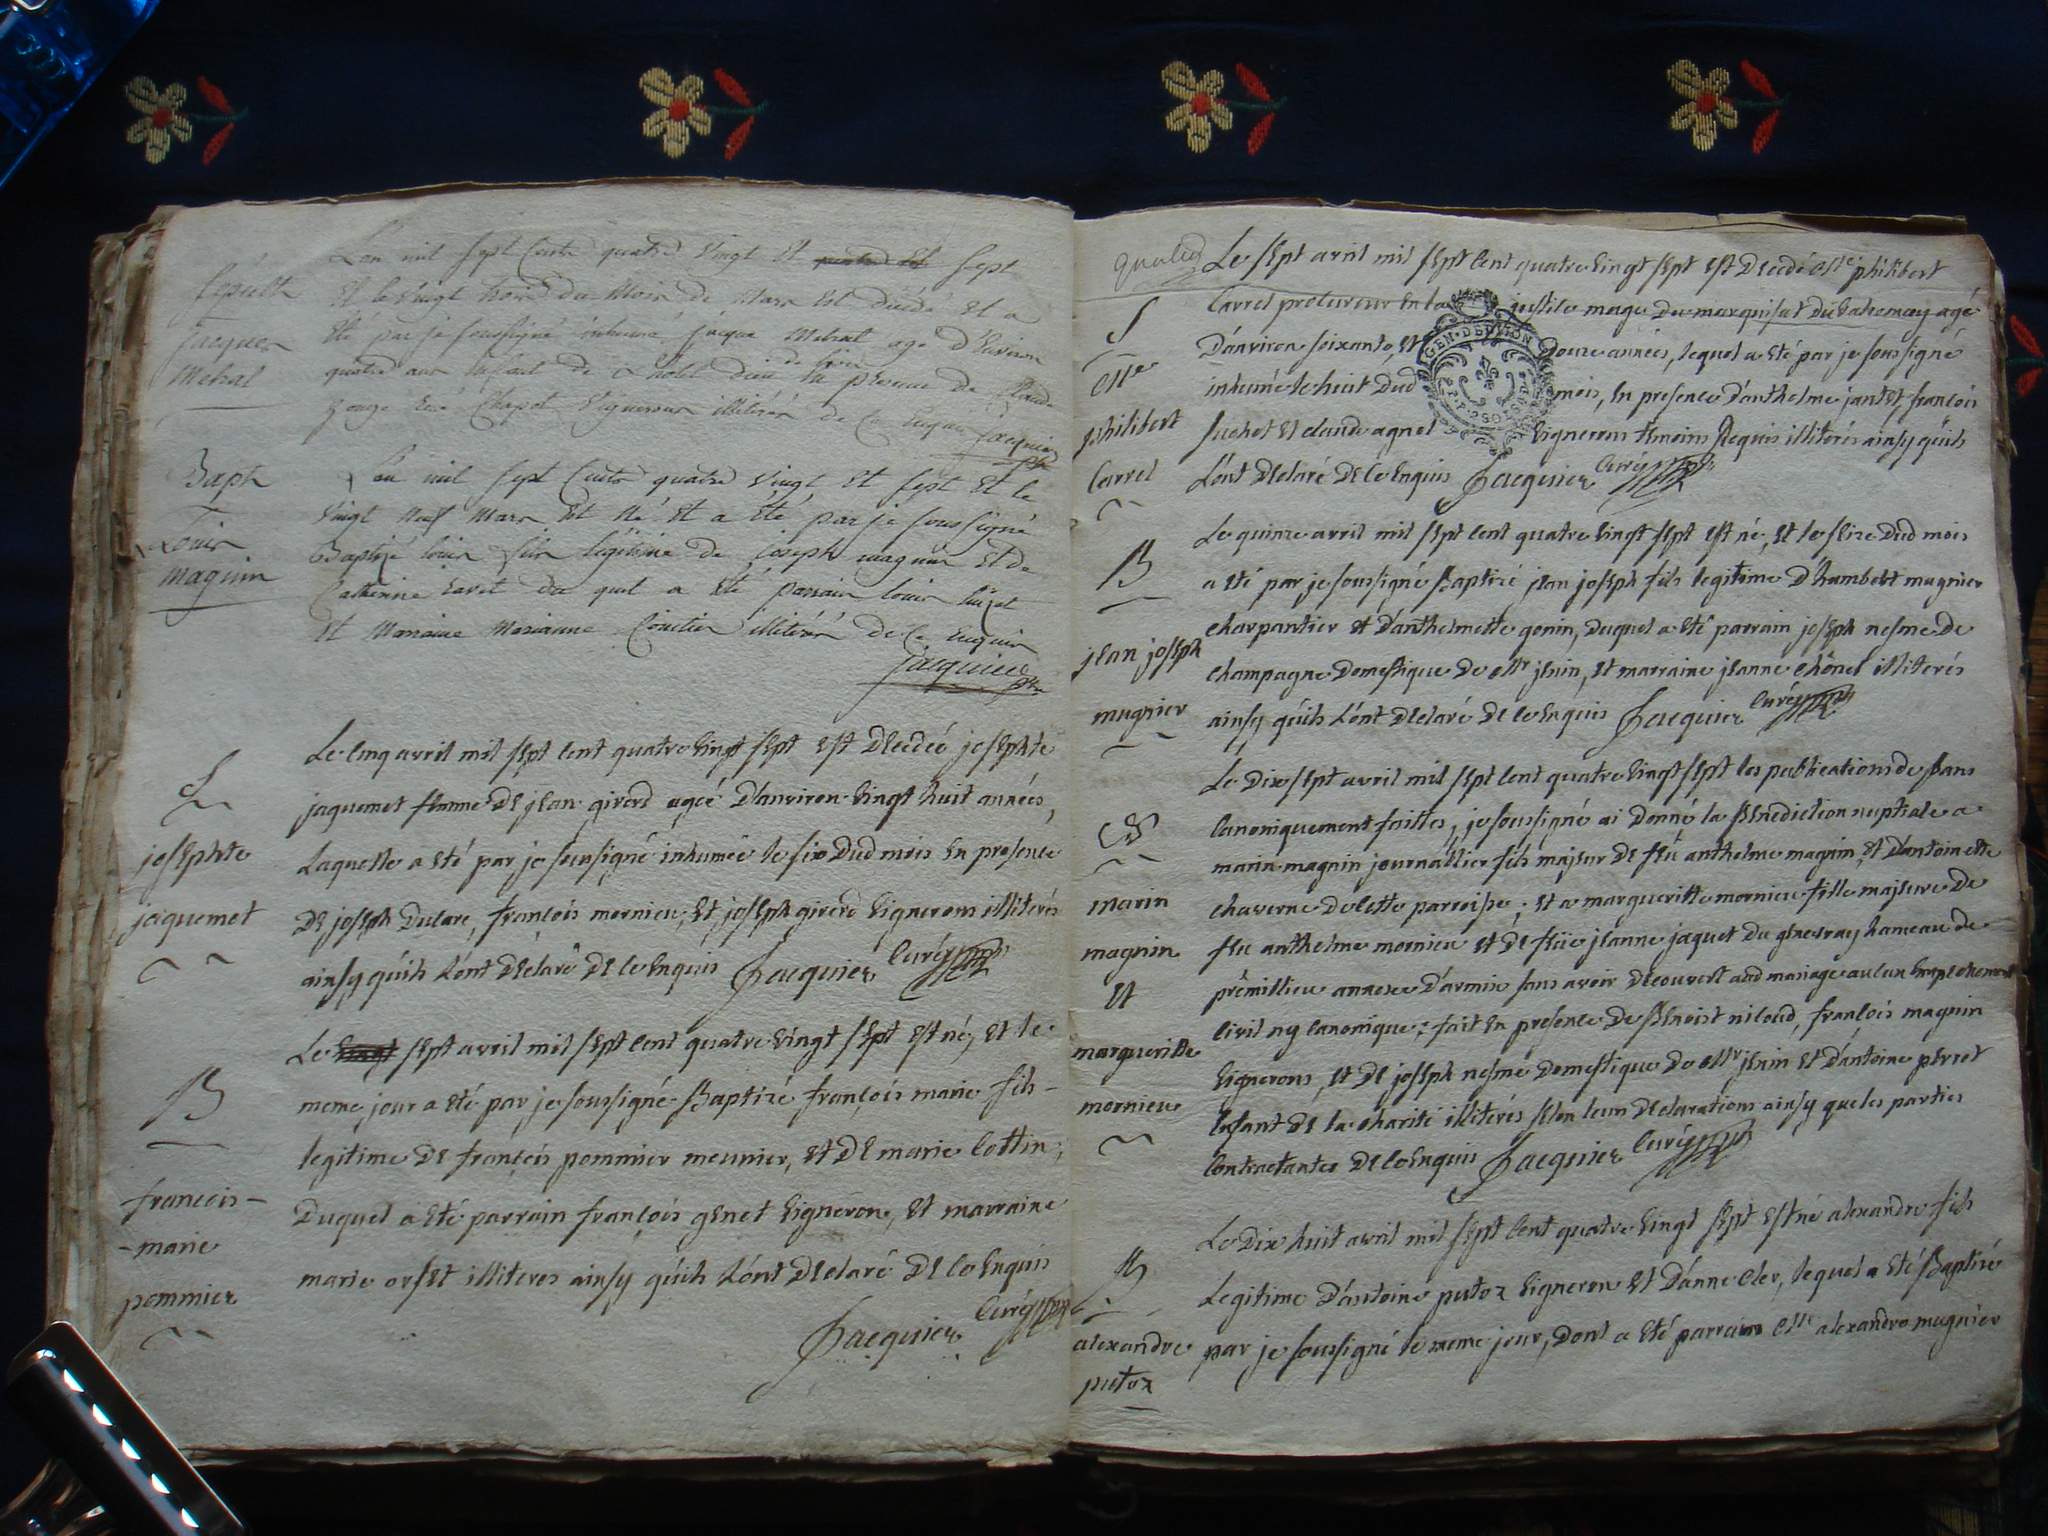 Sépult
jacques
Mehal
L'an mil sept Cents quatre vingt et sept
et le vingt trois du Mois de Mars est décédé et a
été par je soussigné inhumé jacque Mehal age d'Environ
quatre ans Enfant de l'hotel dieu de Lion en presence de Claude
Chapot vignerons illitérés de Ce Enquis jacquier
Baph
Louis
maguin
L'an mil sept Cents quatre vingt et sept et le
vingt Neuf Mars est Né et a été par je soussigné
Baptizé louis fils légitime de joseph maguin et de
Catherine du quel a été parrain louis
et Marraine Marianne illitérés de Ce Enquis
jacquier
S
josephte
jaquemet
Le Cinq avril mil sept Cent quatre vingt sept est décédeé josephte
jaquemet femme de jean girerd ageé d'anviron vingt huit années,
Laquelle a eté par je soussigné inhumée le six dud mois En presence
de joseph Dulare, francois mornieu, et joseph girerd vignerons illiterés
ainsy qu'ils L'ont declaré de Ce Enquis Jacquier Curé
B
francois-
-marie
pommier
Le sept avril mil sept Cent quatre vingt sept est né, et le
meme jour a eté par je soussigné Baptizé françois marie fils-
legitime de françois pommier meunier, et de marie Cottin;
Duquel a eté parrain françois genet vigneron, et marraine
marie orset illiteres ainsy qu'ils L'ont declaré de Ce Enquis
Jacquier Curé
S
Mre
philibert
Carrel
Le sept avril mil sept Cent quatre vingt sept est decedé Mre philibert
Carrel procureur En la justice mage du marquisat du valromay agé
D'anviron soixante et douze années, lequel a eté par je soussigné
inhumé le huit dud mois, En presence d'anthelme jantet, françois
juchet et claude agnel vignerons temoins Requis illiterés ainsy qu'ils
L'ont declaré de Ce Enquis Jacquier Curé
GEN. DE DIJON
B
jean joseph
mugnier
Le quinze avril mil sept Cent quatre vingt sept est né, et le seize dud mois
a eté par je soussigné Baptizé jean joseph fils legitime d'humbert mugnier
charpantier et d'anthelmette gonin, Duquel a eté parrain joseph nesme de
champagne Domestique de Mr jenin, et marraine jeanne chênel illiterés
ainsy qu'ils L'ont declaré de Ce Enquis Jacquier Curé
marin
magnin
et
margueritte
mornieu
Le Dix sept avril mil sept Cent quatre vingt sept les publications de Bans
Canoniquement faittes, je soussigné ai Donné la Benediction nuptiale a
marin magnin journallier fils majeur de feu anthelme magnin, et d'antoinette
chaverne de Cette parroisse; et a margueritte mornieu fille majeure de
feu anthelme mornieu et de feüe jeanne jaquet du genevray hameau de
prémillieu annexe d'armix sans avoir decouvert aud mariage aucun Empechement
Civil ny Canonique; fait En presence de Benoist niloud, françois magnin
vignerons, et de joseph nesme domestique de Mr jenin et d'antoine perret
Enfant de la charité illiterés selon leurs declarations ainsy que les parties
Contractantes de Ce Enquis Jacquier Curé
B
alexandre
putoz
Le Dix huit avril mil sept Cent quatre vingt sept est né alexandre fils
Legitime d'antoine putoz vigneron et d'anne Cler, lequel a eté Baptizé
par je soussigné le meme jour, dont a eté parrain Mre alexandre mugnier